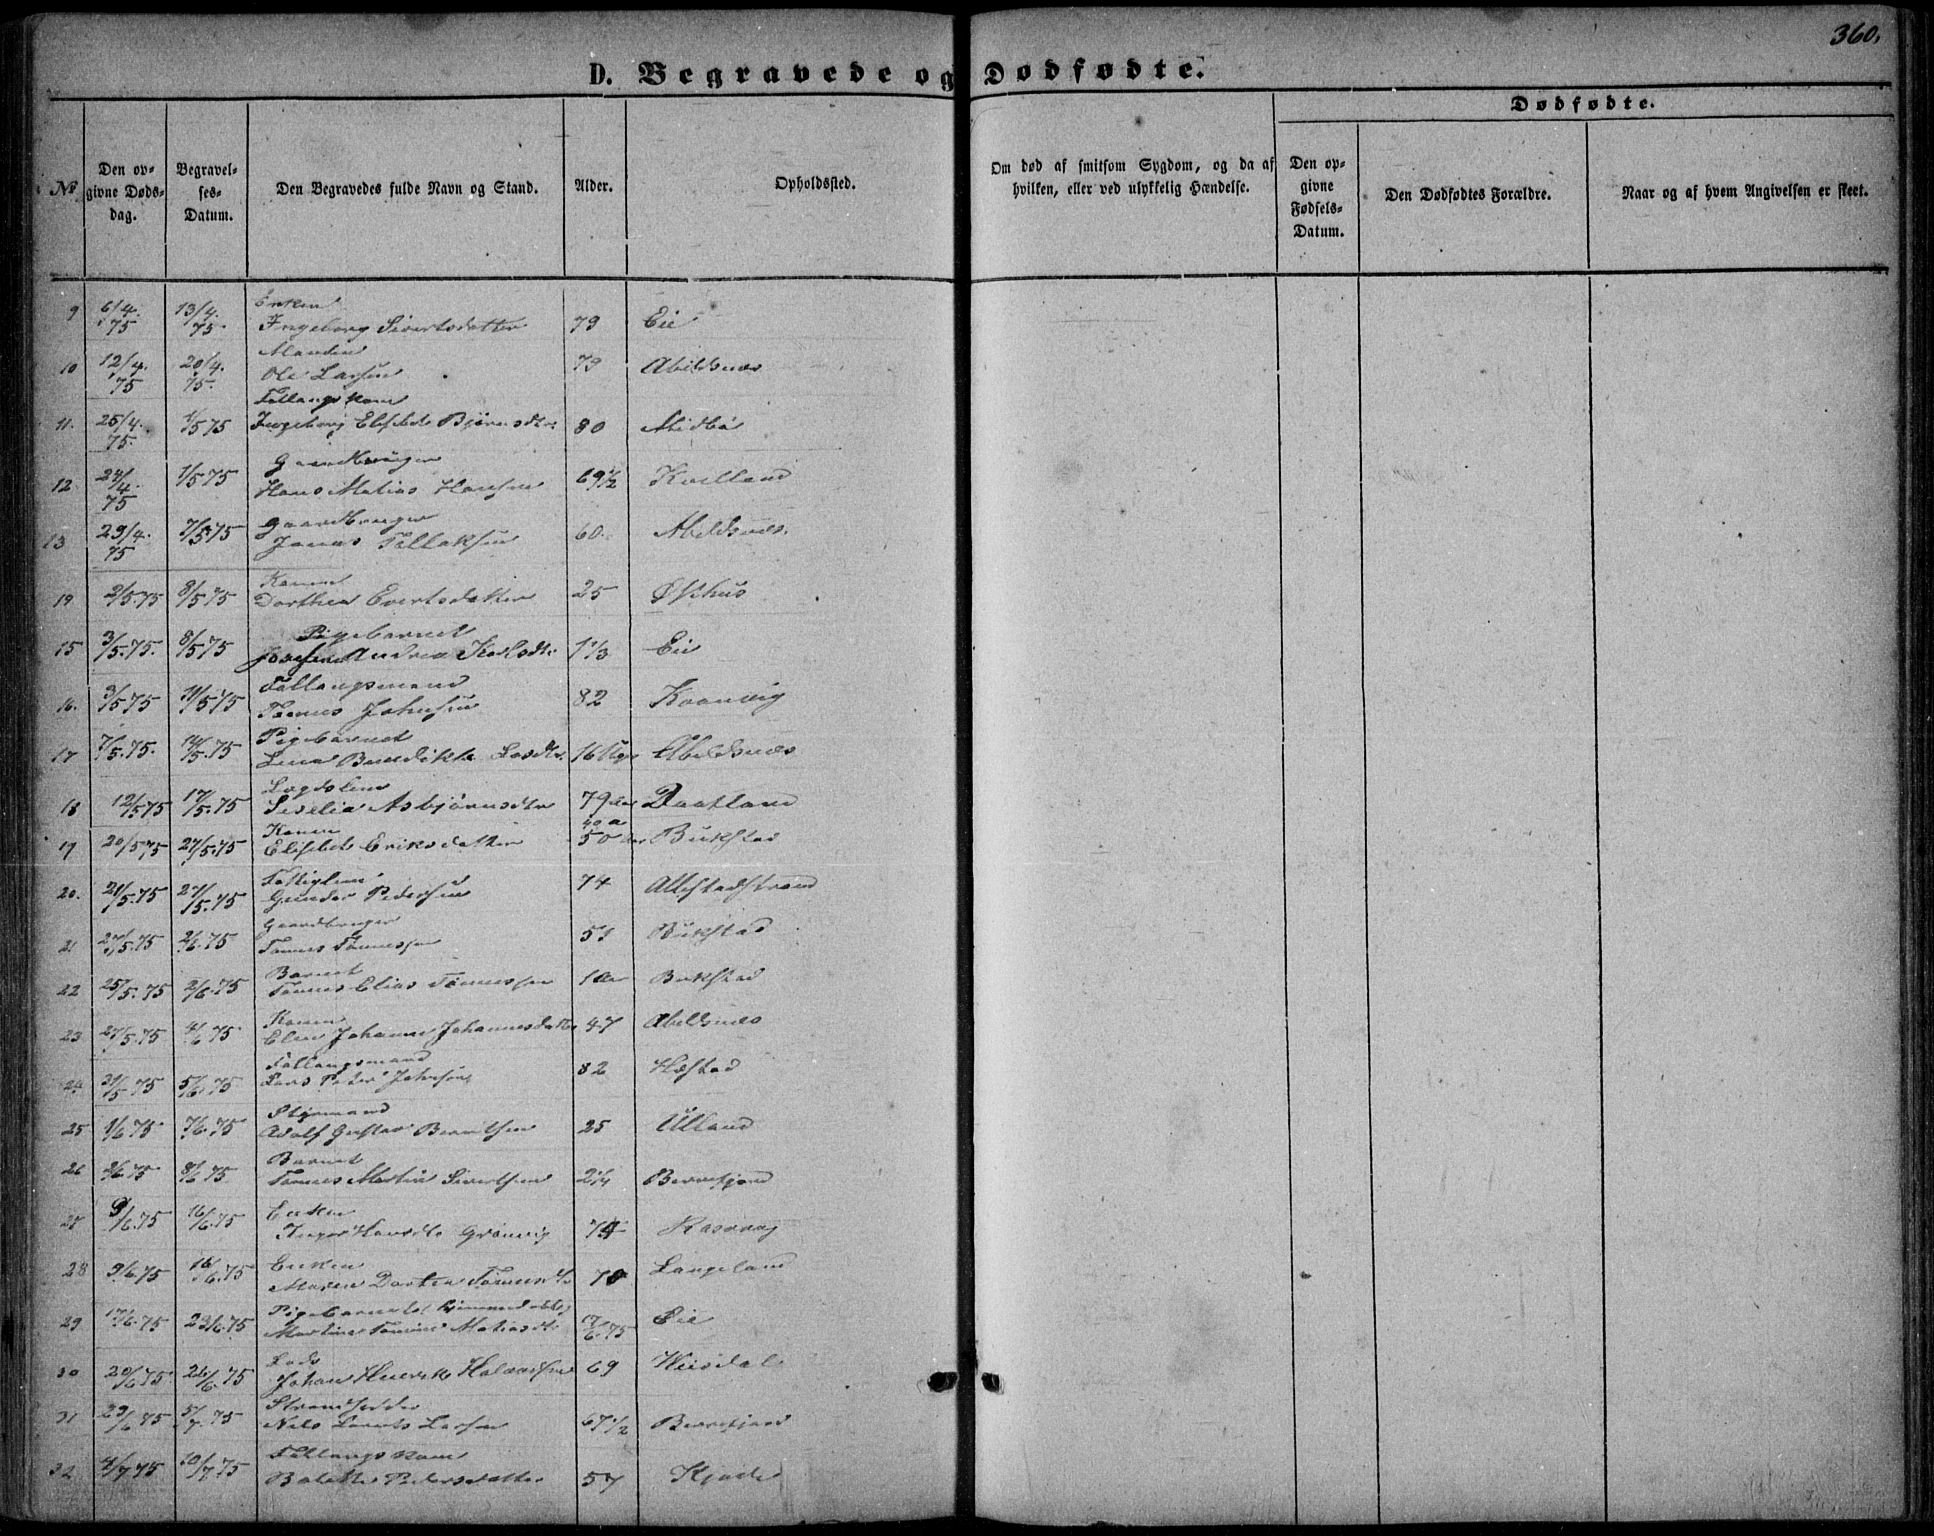 360.
D. Begravede og Dødfødte.
Dødfødte.
No
Den opgivne Dødsdag.
Begravelses-Datum.
Den Begravedes fulde Navn og Stand.
Alder.
Opholdssted.
Om død af smitsom Sygdom, og da af hvilken, eller ved ulykkelig Hændelse.
Den opgivne Fødsels-Datum.
Den Dødfødtes Forældre.
Naar og af hvem Angivelsen er skeet.
Enken
9 6/4. 75 13/4. 75. Ingeborg Sivertsdatter 79 Eie
Manden
10 12/4. 75 20/4. 75. Ole Larsen 73 Abildsnæs
Follaugskone
11. 25/4. 75. 1/5 75 Ingeborg Elisbet Bjørnsdtr 80 Midbø
Gaardbruger
12 24/4. 75 1/5 75 Hans Matias Hansen 69 1/2 Kvelland
Gaardbruger
13 29/4. 75 7/5 75 Jonas Tellaksen 60. Abeldsnæs.
Konen
19 2/5 75 8/5 75 Dorthea Evertsdatter 25 Østhus
Pigebarnet
15 3/5. 75. 8/5 75 Josefine Andrea Karlsdtr 1 1/3 Eie
Follaugsmand
16. 3/5 75 11/5 75 Tønnes Johnsen 82
Pigebarnet
17 7/5. 75. 14/5. 75 Lina Bendikte Lasdtr. 16 Uger Abeldsnæs
Lægdslem
18 12/5 75 17/5. 75 Seselia Asbjørnsdtr 79 aar Daatland
Konen 40 a
17 20/5 75 27/5. 75 Elisbet Eriksdatter 50 aar Bukstad
Fattiglem
20. 21/5. 75 27/5. 75 Gunder Pedersen 74
Gaardbruger
21 27/5. 75 2/6. 75 Tønnes Tønnessen 51 Bukstad
Barnet
22 25/5. 75 2/6. 75 Tønnes Elias Tønnessen 1 aar Bukstad
Konen
23 27/5. 75 4/6 75 Elen Johanne Johannesdatter 47 Abeldsnæs
Follaugsmand
24 31/5 75 5/6. 75 Lars Peter Johnsen 82 Hæstad
Styrmand
25 1/6 75 7/6. 75 Adolf Gustav Berntsen 25 Ulland
Barnet
26 2/6 75 8/6 75 Tønnes Martin Sivertsen 2 1/4 Berrefjord
Enken
27 9/6. 75 16/6. 75 Inger Hansdtr Grønvig 74 Rasvaag
Enken
28 9/6 75 16/6. 75 Maren Dortea Tønnesdtr 70 Langeland
Pigebarnet hjemmedøbt
29 17/6. 75 23/6. 75 Martine Tomine Matiasdtr 17/6. 75 Eie
Lods
30 20/6 75 26/6. 75 Johan Henrik Halvorsen 69
Strandsidder
31 29/6 75 5/7. 75 Nels Lorents Larsen 67 1/2 Berrefjord
Follaugskone
32 4/7 75 10/7. 75 Pedersdatter 57